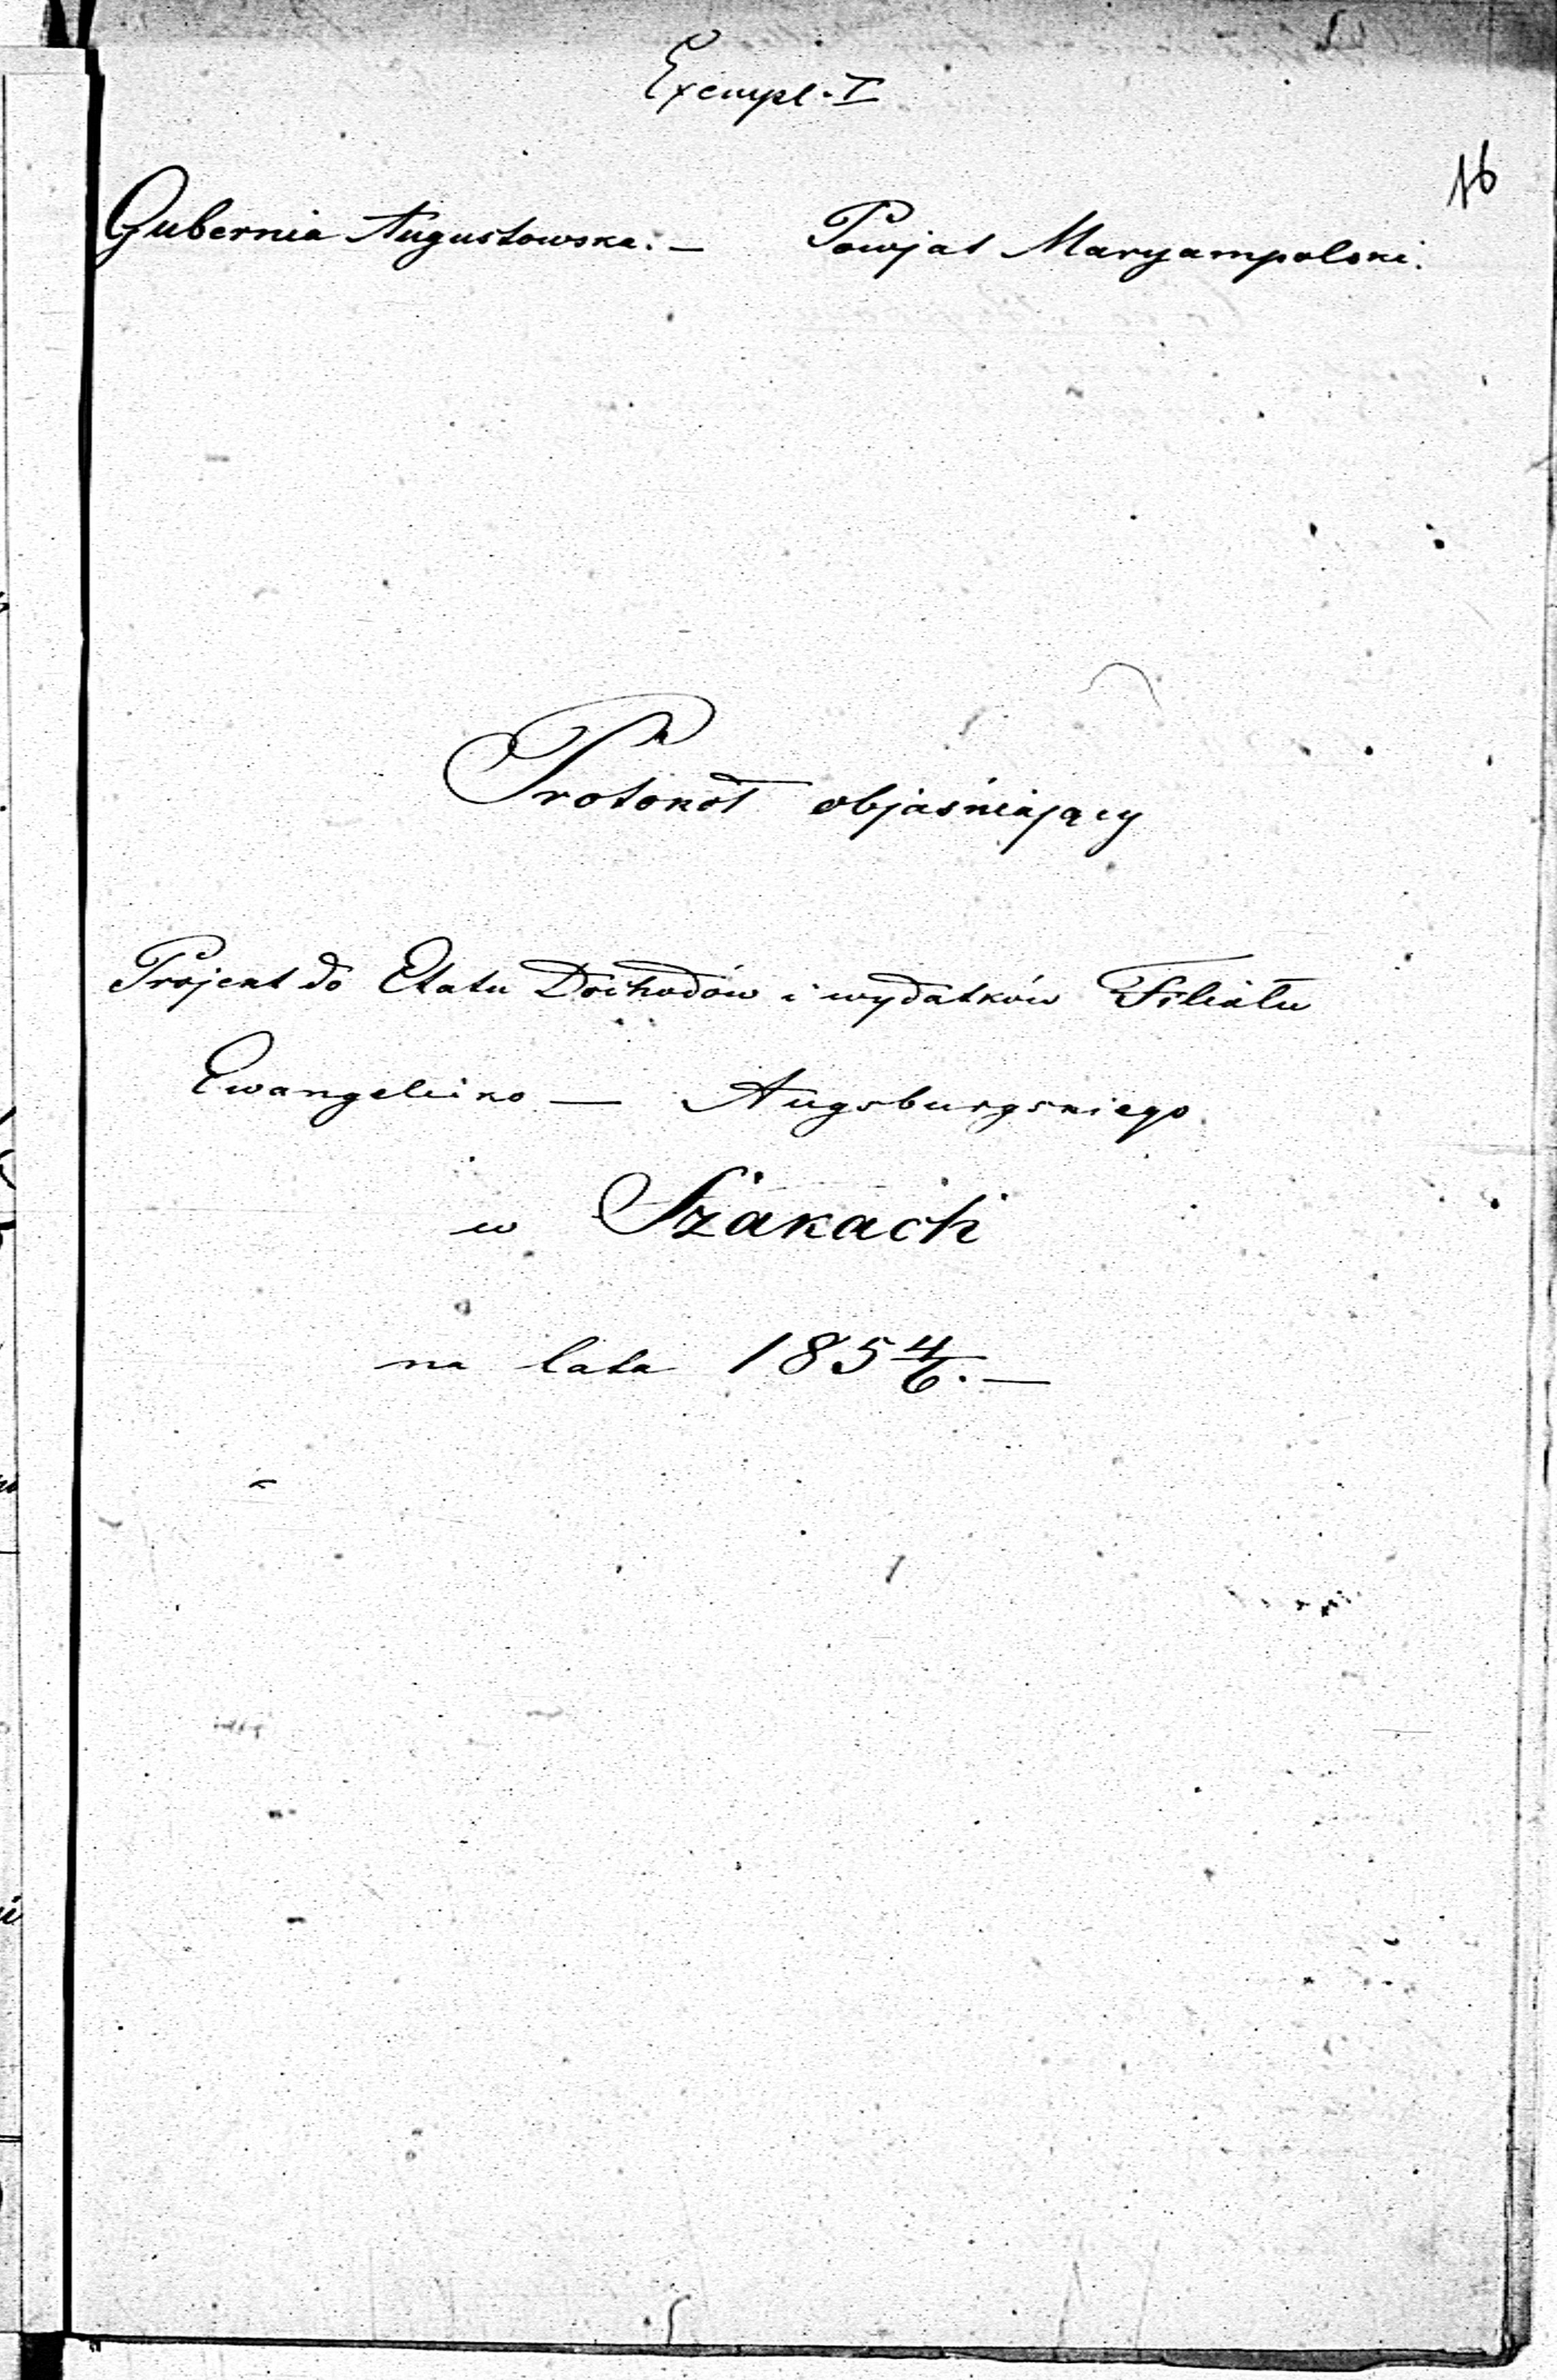 Exempl. I
16
Gubernia Augustowska. — Powjat Maryampolski.
Protokół objaśniający
Projekt do Etatu Dochodów i wydatków Filiału
Ewangelicko — Augsburgskiego
w Szakach
na lata 185 4/6. —